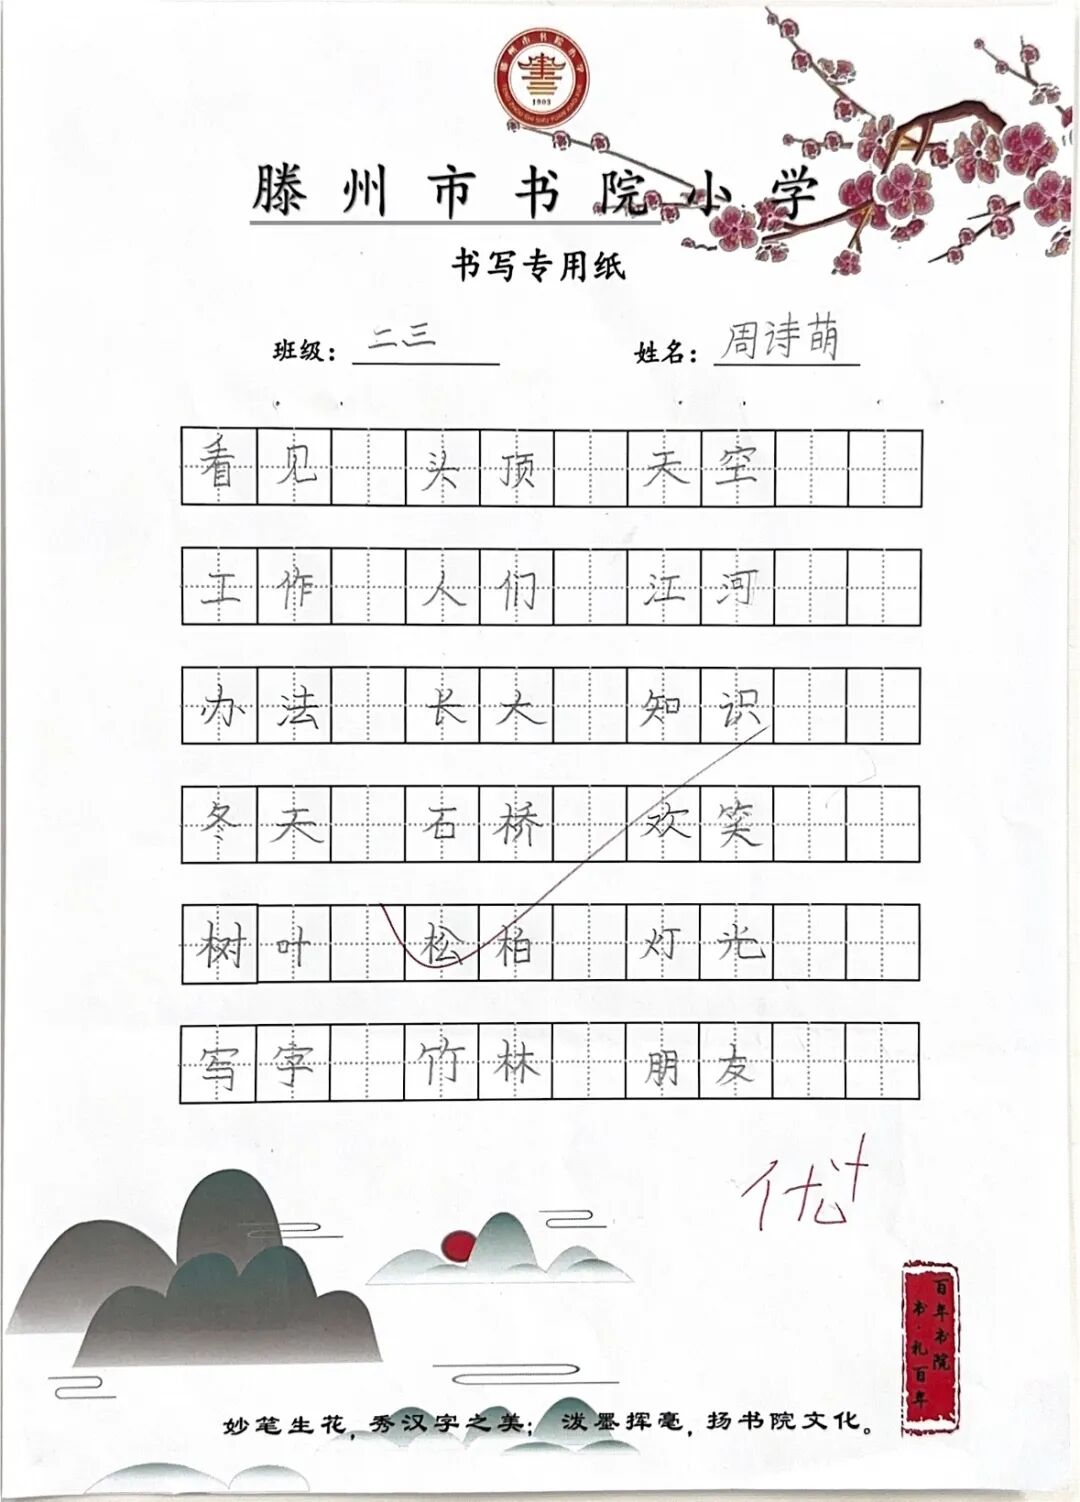 滕州市书院小学
TENG ZHOU SHI SHU YUAN XIAO XUE
1903
滕州市书院小学
书写专用纸
班级：二三 姓名：周诗萌
看见 头顶 天空
工作 人们 江河
办法 长大 知识
冬天 石桥 欢笑
树叶 松柏 灯光
写字 竹林 朋友
优+
百年书院
书·礼百年
妙笔生花，秀汉字之美； 泼墨挥毫，扬书院文化。